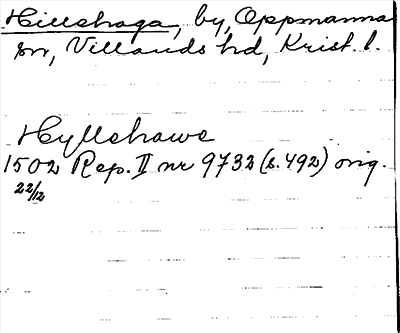 Hillshaga, by, Oppmanna
sn, Villands hd, Krist. l.
Hyllshawe
1502 Rep. II nr 9732 (s. 492) orig.
22/12